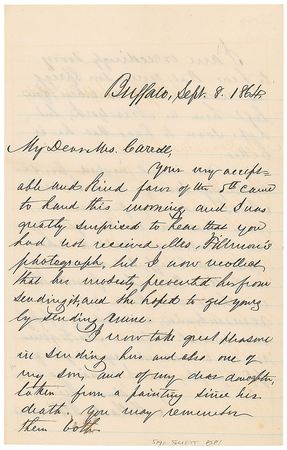 Buffalo, Sept. 8. 1864.
My Dear Mrs. Carroll,
Your very accept-
able and kind favor of the 5th came
to hand this morning and I was
greatly surprised to hear that you
had not received Mrs. Fillmore's
photograph, but I now recollect
that her modesty prevented her from
sending it, and she hoped to get yours
by sending mine.
I now take great pleasure
in sending hers and also one of
my son, and of my dear daughter,
taken from a painting since her
death. You may remember
them both.